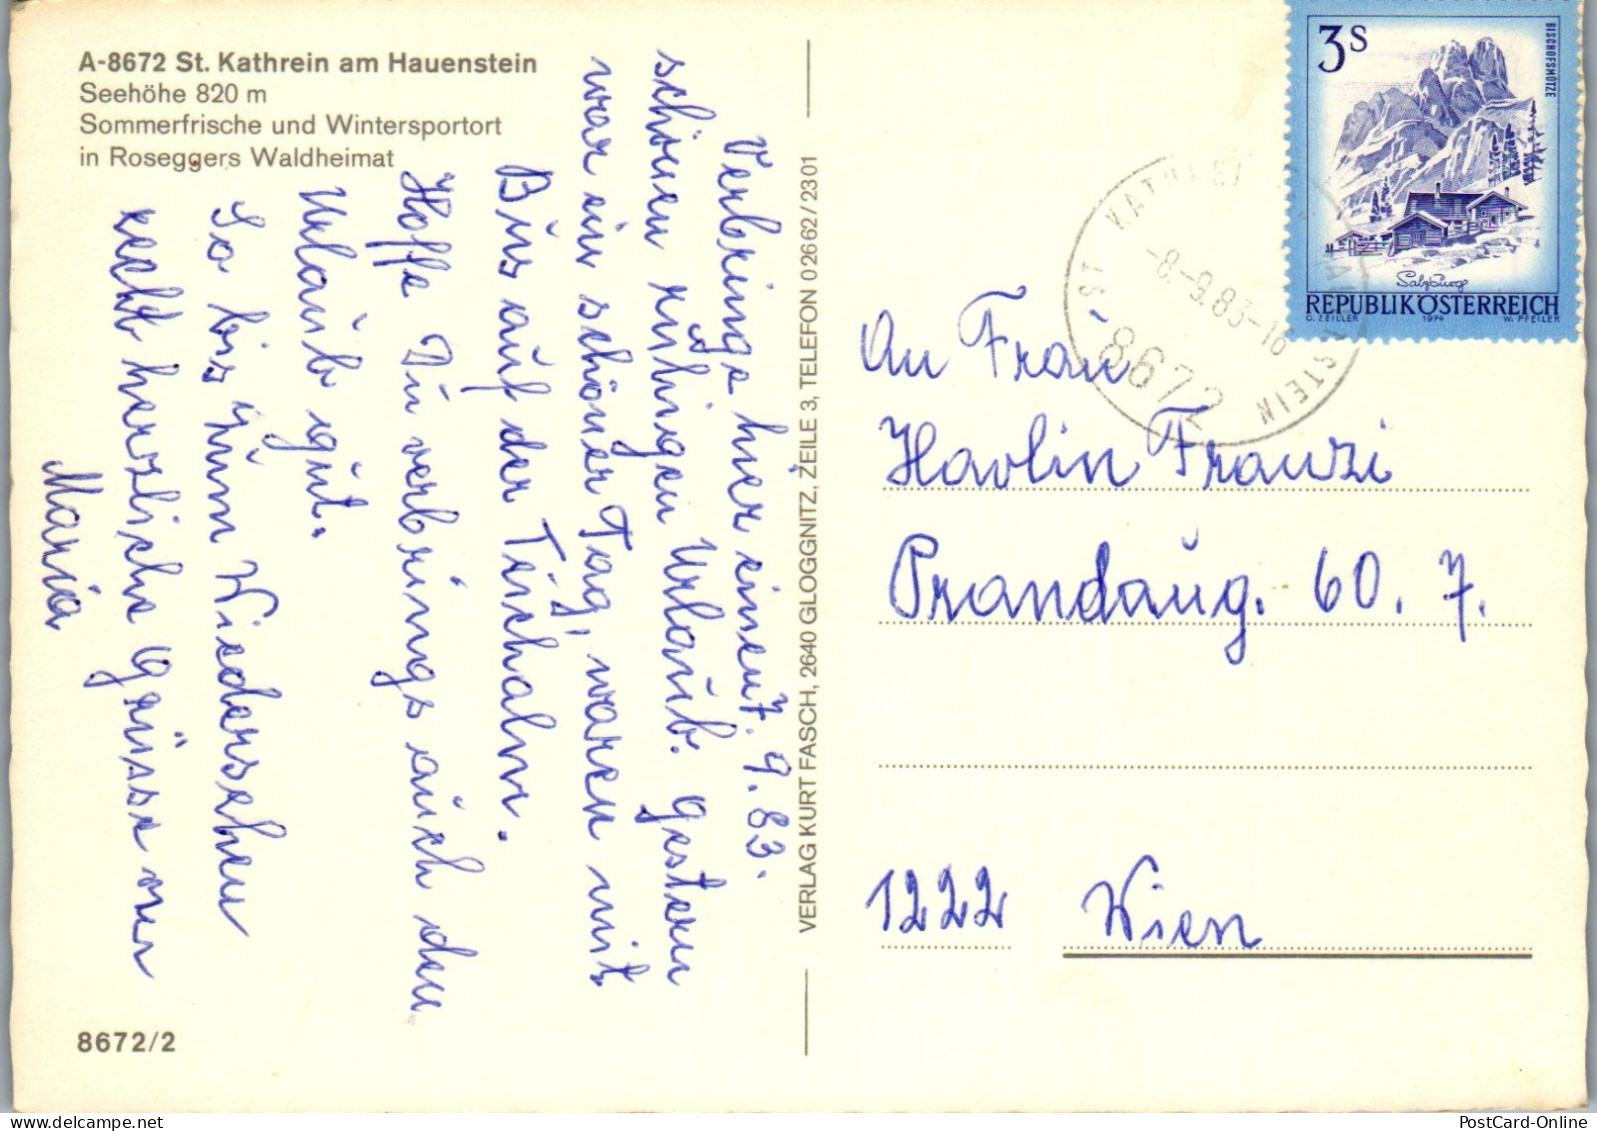 A-8672 St. Kathrein am Hauenstein
Seehöhe 820 m
Sommerfrische und Wintersportort
in Roseggers Waldheimat
7.9.83.
Verbringe hier einen
schönen ruhigen Urlaub. Gestern
war ein schöner Tag, waren mit
Bus auf der Teichalm.
Hoffe Du verbrings auch den
Urlaub gut.
So bis zum Wiedersehen
recht herzliche Grüsse von
Maria
8672/2
VERLAG KURT FASCH, 2640 GLOGGNITZ, ZEILE 3, TELEFON 02662/2301
3S
BISCHOFSMÜTZE
Salzburg
REPUBLIK ÖSTERREICH
O. ZEILLER 1974 W. PFEILER
-8.-9.83-16
8672
An Frau
Havlin Franzi
Prandaug. 60. 7.
1222 Wien
PostCard-Online